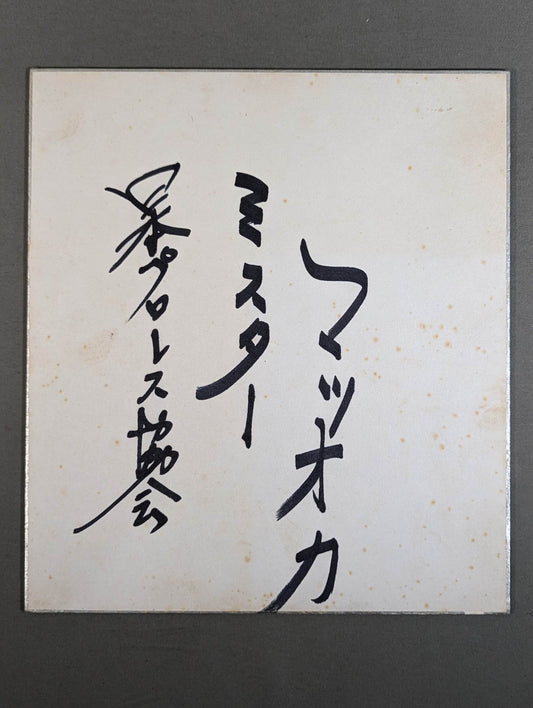 マツオカ
ミスター
日本プロレス協会